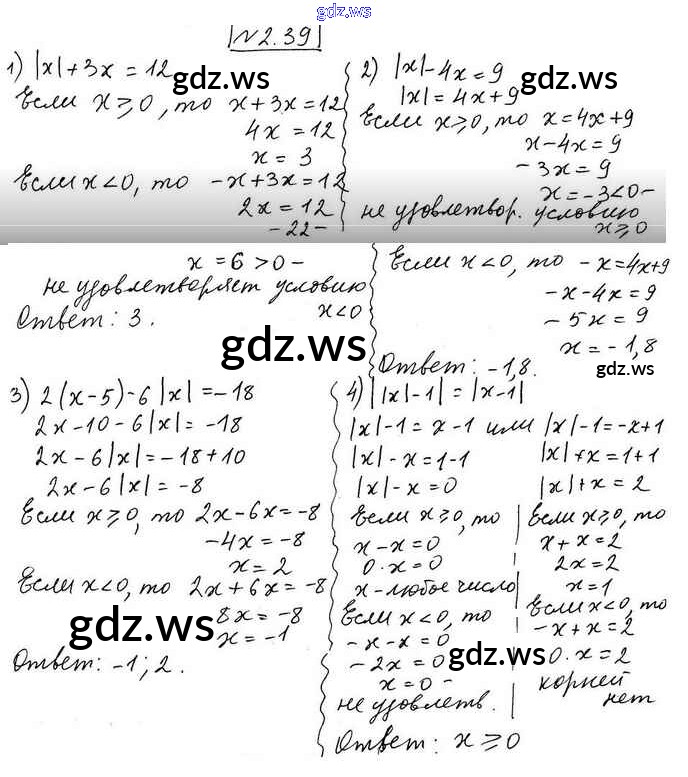 gdz.ws
№2.39
1) |x|+3x=12
Если x≥0, то x+3x=12
4x=12
x=3
Если x<0, то -x+3x=12
2x=12
-22-
x=6>0-
не удовлетворяет условию
x<0
Ответ: 3.
gdz.ws
2) |x|-4x=9
|x|=4x+9
Если x≥0, то x=4x+9
x-4x=9
-3x=9
x=-3<0-
не удовлетвор. условию
x≥0
Если x<0, то -x=4x+9
-x-4x=9
-5x=9
x=-1,8
Ответ: -1,8.
gdz.ws
gdz.ws
gdz.ws
3) 2(x-5)-6|x|=-18
2x-10-6|x|=-18
2x-6|x|=-18+10
2x-6|x|=-8
Если x≥0, то 2x-6x=-8
-4x=-8
x=2
Если x<0, то 2x+6x=-8
8x=-8
x=-1
Ответ: -1; 2.
gdz.ws
4) ||x|-1|=|x-1|
|x|-1=x-1 или |x|-1=-x+1
|x|-x=1-1
|x|-x=0
Если x≥0, то
x-x=0
0·x=0
x-любое число
Если x<0, то
-x-x=0
-2x=0
x=0-
не удовлетв.
|x|+x=1+1
|x|+x=2
Если x≥0, то
x+x=2
2x=2
x=1
Если x<0, то
-x+x=2
0·x=2
корней
нет
Ответ: x≥0
gdz.ws